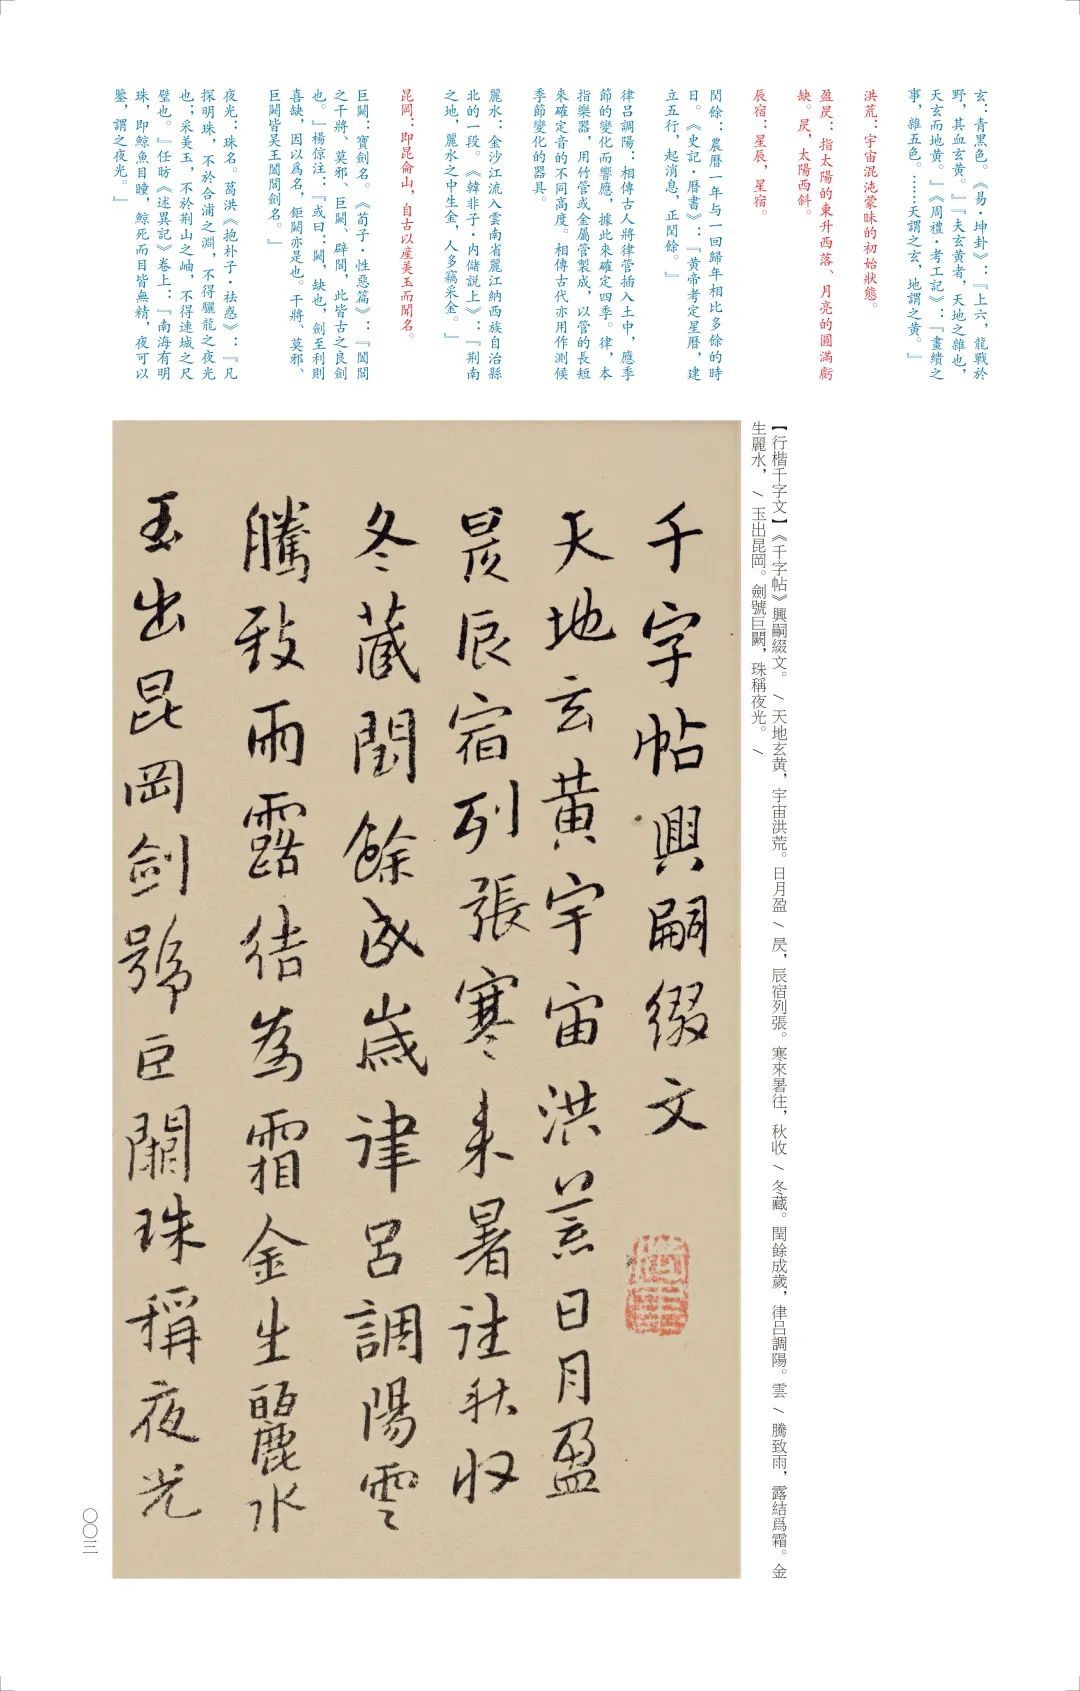 玄：青黑色。《易·坤卦》：『上六，龍戰於
野，其血玄黃。』『夫玄黃者，天地之雜也，
天玄而地黃。』《周禮·考工記》：『畫繢之
事，雜五色。……天謂之玄，地謂之黃。』
洪荒：宇宙混沌蒙昧的初始狀態。
盈昃：指太陽的東升西落、月亮的圓滿虧
缺。昃，太陽西斜。
辰宿：星辰，星宿。
閏餘：農曆一年与一回歸年相比多餘的時
日。《史記·曆書》：『黃帝考定星曆，建
立五行，起消息，正閏餘。』
律呂調陽：相傳古人將律管插入土中，應季
節的變化而響應，據此來確定四季。律，本
指樂器，用竹管或金屬管製成，以管的長短
來確定音的不同高度。相傳古代亦用作測候
季節變化的器具。
麗水：金沙江流入雲南省麗江納西族自治縣
北的一段。《韓非子·內儲説上》：『荆南
之地，麗水之中生金，人多竊采金。』
昆岡：即昆侖山，自古以産美玉而聞名。
巨闕：寶劍名。《荀子·性惡篇》：『闔閭
之干將、莫邪、巨闕、辟閭，此皆古之良劍
也。』楊倞注：『或曰：闕，缺也，劍至利則
喜缺，因以爲名，鉅闕亦是也。干將、莫邪、
巨闕皆吴王闔閭劍名。』
夜光：珠名。葛洪《抱朴子·祛惑》：『凡
探明珠，不於合浦之淵，不得驪龍之夜光
也；采美玉，不於荆山之岫，不得連城之尺
璧也。』任昉《述異記》卷上：『南海有明
珠，即鯨魚目瞳，鯨死而目皆無精，夜可以
鑒，謂之夜光。』
【行楷千字文】《千字帖》興嗣綴文。/天地玄黄，宇宙洪荒。日月盈/昃，辰宿列張。寒來暑往，秋收/冬藏。閏餘成歲，律吕調陽。雲/騰致雨，露結爲霜。金
生麗水，/玉出昆岡。劍號巨闕，珠稱夜光。/
千字帖興嗣綴文
天地玄黃宇宙洪荒日月盈
昃辰宿列張寒来暑往秋收
冬藏閏餘成歲律呂調陽雲
騰致雨露結為霜金生麗水
玉出昆岡劍號巨闕珠稱夜光
〇〇三